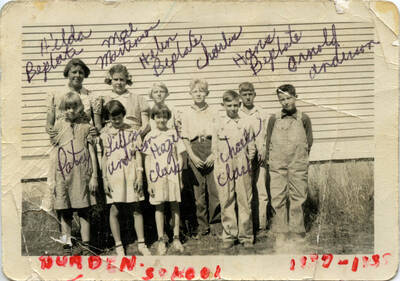 Hilda
Beplate
Mae
Martinson
Helen
Beplate
Charles
Hans
Beplate
Arnold
Anderson
Patsy
Lillian
Anderson
Hazel
Clary
Charles
Clary
DURDEN.
SCHOOL